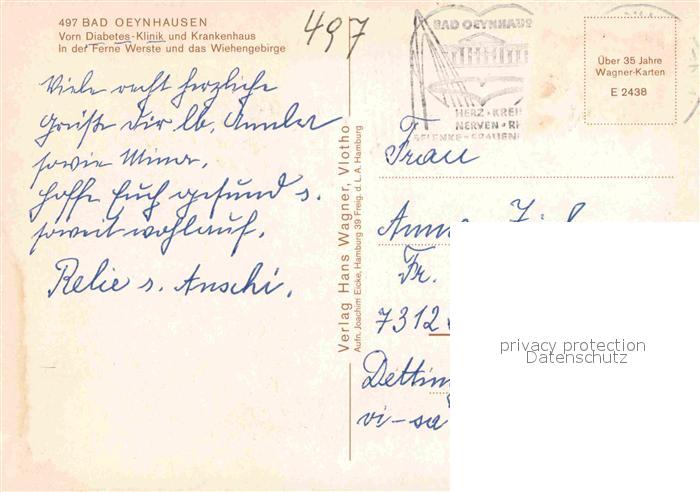 497 BAD OEYNHAUSEN
Vorn Diabetes-Klinik und Krankenhaus
In der Ferne Werste und das Wiehengebirge
497
BAD OEYNHAUS
HERZ • KREI
NERVEN • R
GELENKE • FRAUEN
Über 35 Jahre
Wagner-Karten
E 2438
Viele recht herzliche
Grüße Dir lb.
sowie Mina,
hoffe Euch gesund u.
soweit wohlauf.
Relie u. Anschi.
Verlag Hans Wagner, Vlotho
Aufn. Joachim Eicke, Hamburg 39 Freig. d. L. A. Hamburg
Fr
Frau
Fr.
7312
Dettin
vi-sa
privacy protection
Datenschutz